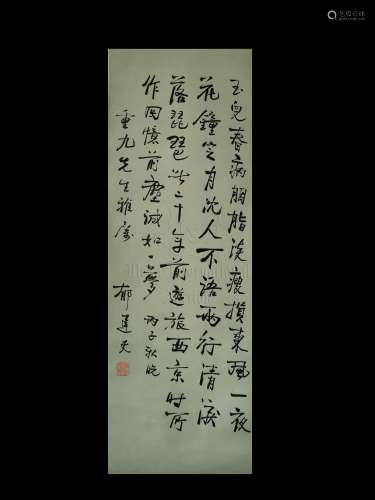 玉兒春病胭脂瘦損東風一夜
花鐘月沈人不語兩行清淚
落琵琶此二十年前遊旅西京時所
作回憶前塵誠如一夢 丙子秋晚
重九先生雅屬
郁達夫